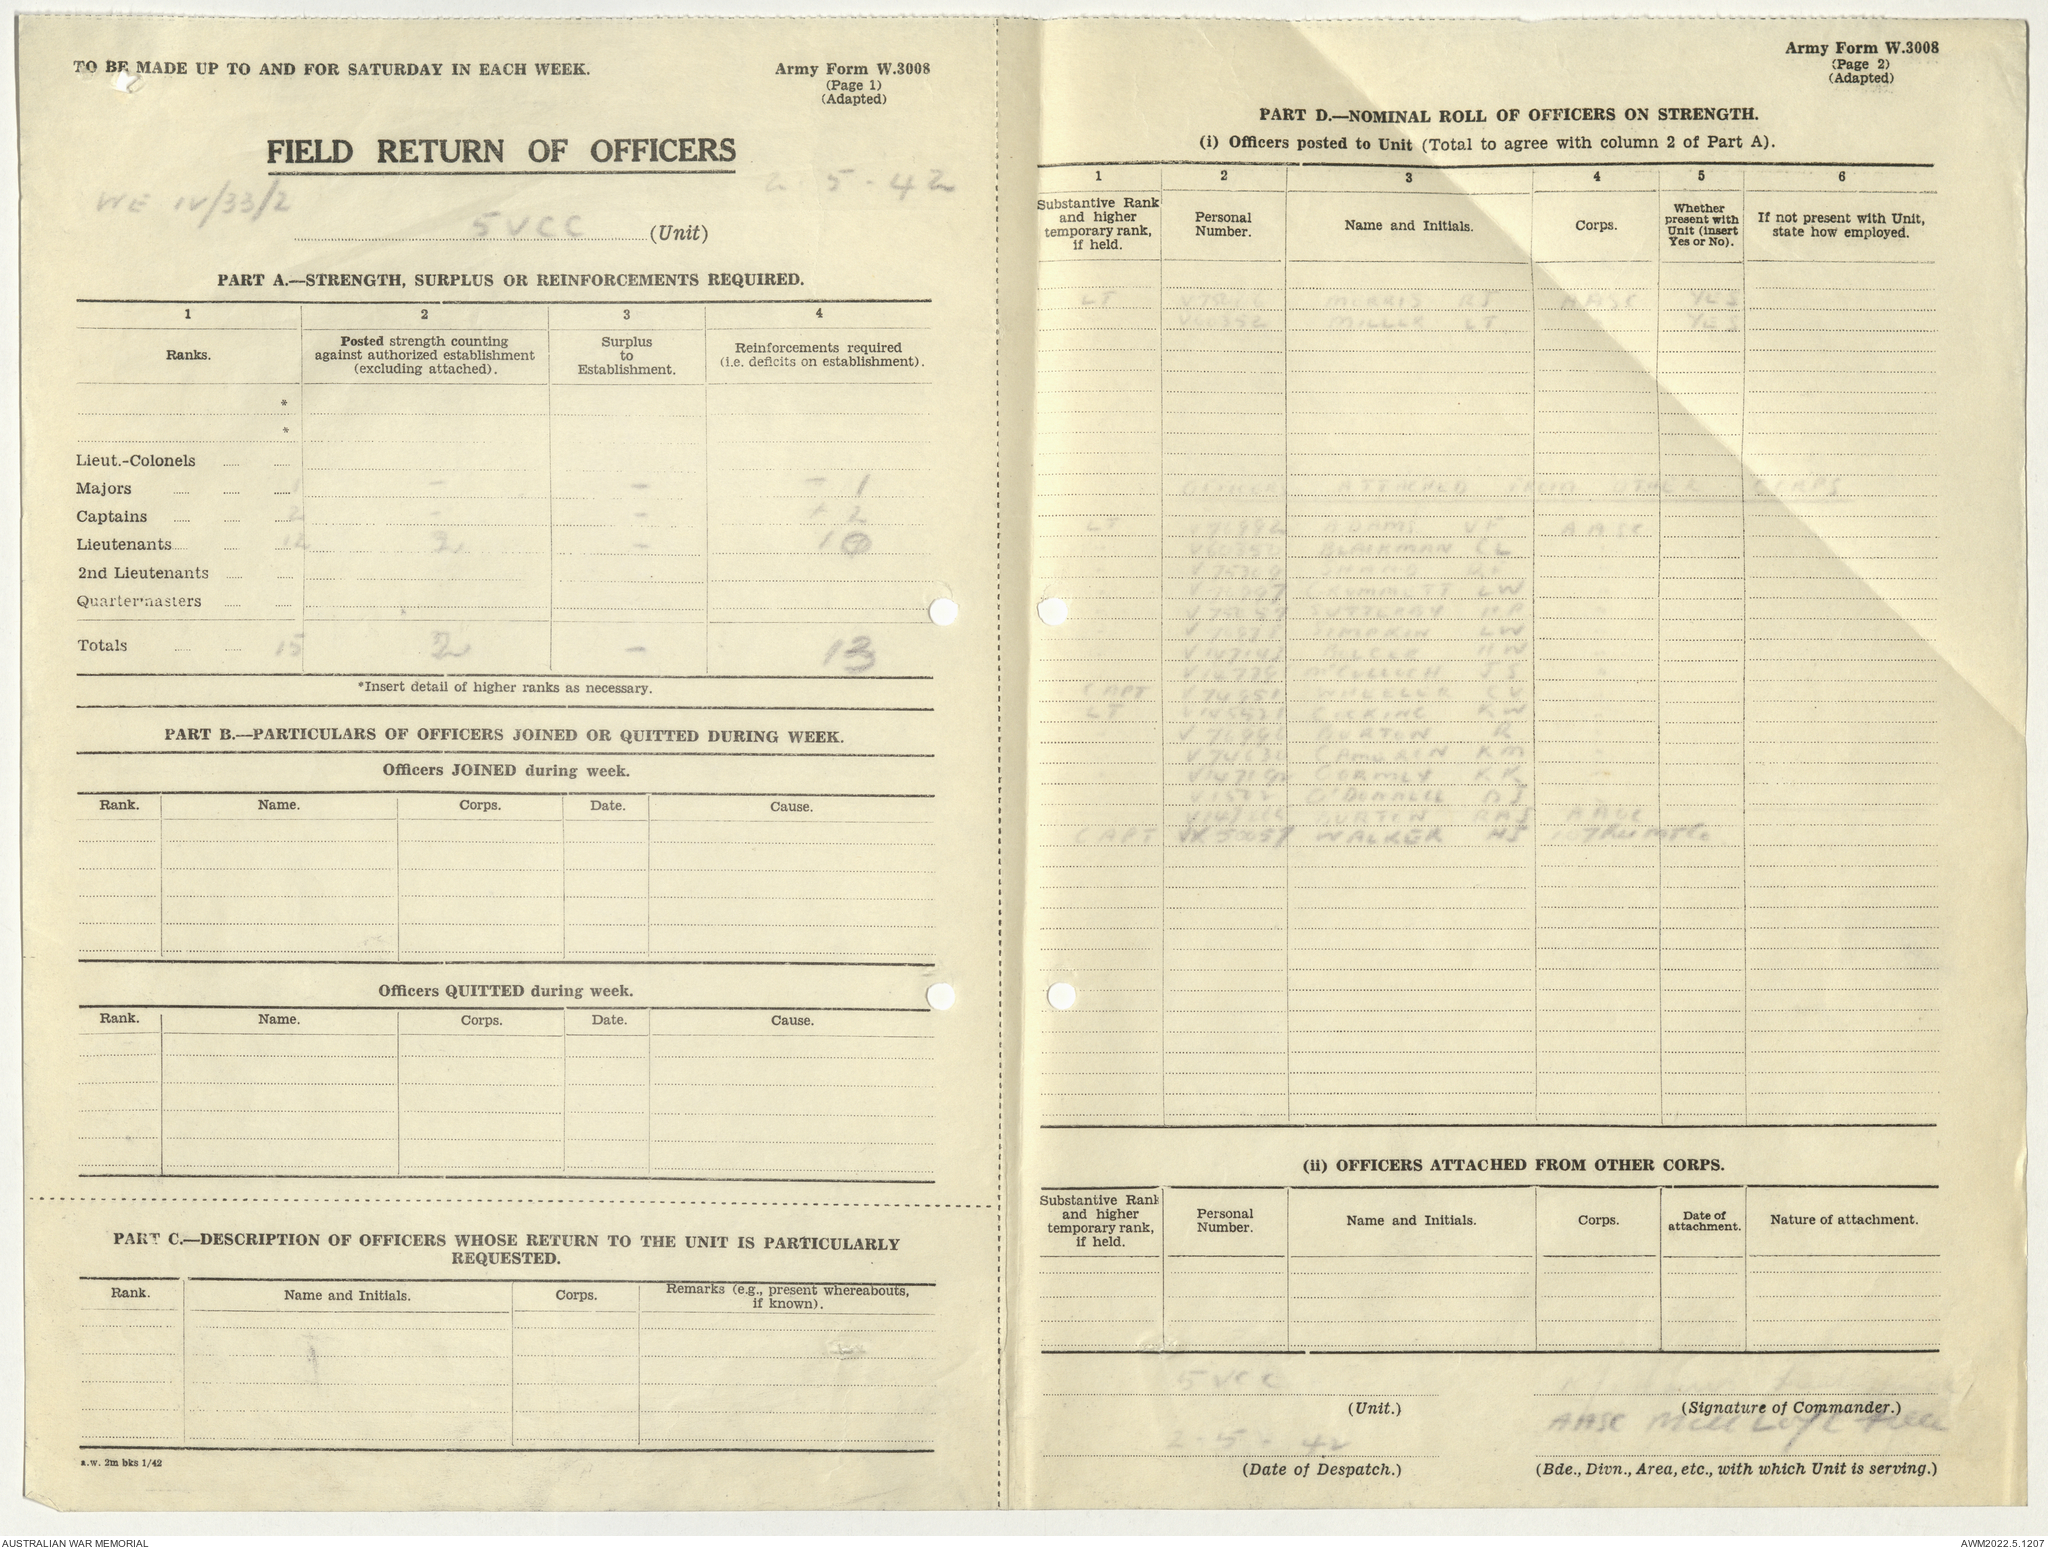 TO BE MADE UP TO AND FOR SATURDAY IN EACH WEEK.
Army Form W.3008
(Page 1)
(Adapted)
FIELD RETURN OF OFFICERS
WE IV/33/2
2-5-42
5 VCC (Unit)
PART A.—STRENGTH, SURPLUS OR REINFORCEMENTS REQUIRED.
1 2 3 4
Ranks. Posted strength counting against authorized establishment (excluding attached). Surplus to Establishment. Reinforcements required (i.e. deficits on establishment).
*
*
Lieut.-Colonels
Majors 1 - - 1
Captains 2 - - 2
Lieutenants 12 2 -
2nd Lieutenants
Quartermasters
Totals 15 2 - 13
*Insert detail of higher ranks as necessary.
PART B.—PARTICULARS OF OFFICERS JOINED OR QUITTED DURING WEEK.
Officers JOINED during week.
Rank. Name. Corps. Date. Cause.
Officers QUITTED during week.
Rank. Name. Corps. Date. Cause.
PART C.—DESCRIPTION OF OFFICERS WHOSE RETURN TO THE UNIT IS PARTICULARLY
REQUESTED.
Rank. Name and Initials. Corps. Remarks (e.g., present whereabouts, if known).
a.w. 2m bks 1/42
Army Form W.3008
(Page 2)
(Adapted)
PART D.—NOMINAL ROLL OF OFFICERS ON STRENGTH.
(i) Officers posted to Unit (Total to agree with column 2 of Part A).
1 2 3 4 5 6
Substantive Rank and higher temporary rank, if held. Personal Number. Name and Initials. Corps. Whether present with Unit (insert Yes or No). If not present with Unit, state how employed.
LT MORRIS RJ AASC YES
MILLER LT YES
OFFICERS ATTACHED FROM OTHER CORPS
LT ADAMS VF AASC
BLACKMAN CL
LW
SIMPKIN LW
JS
CAPT WHEELER CV
LT KW
BURTON R
CAMERON KM
GORMLY KK
O'DONNELL
BURTON RAS AASC
CAPT WALKER HJ
(ii) OFFICERS ATTACHED FROM OTHER CORPS.
Substantive Rank and higher temporary rank, if held. Personal Number. Name and Initials. Corps. Date of attachment. Nature of attachment.
5 VCC
(Unit.)
(Signature of Commander.)
AASC
2-5-42
(Date of Despatch.)
(Bde., Divn., Area, etc., with which Unit is serving.)
AUSTRALIAN WAR MEMORIAL
AWM2022.5.1207